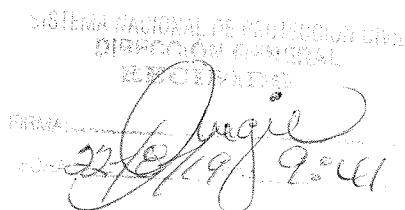 SISTEMA NACIONAL DE PROTECCION CIVIL
DIRECCION GENERAL
RECIBIDO
FIRMA: Angie
FECHA: 22/8/19 9:41